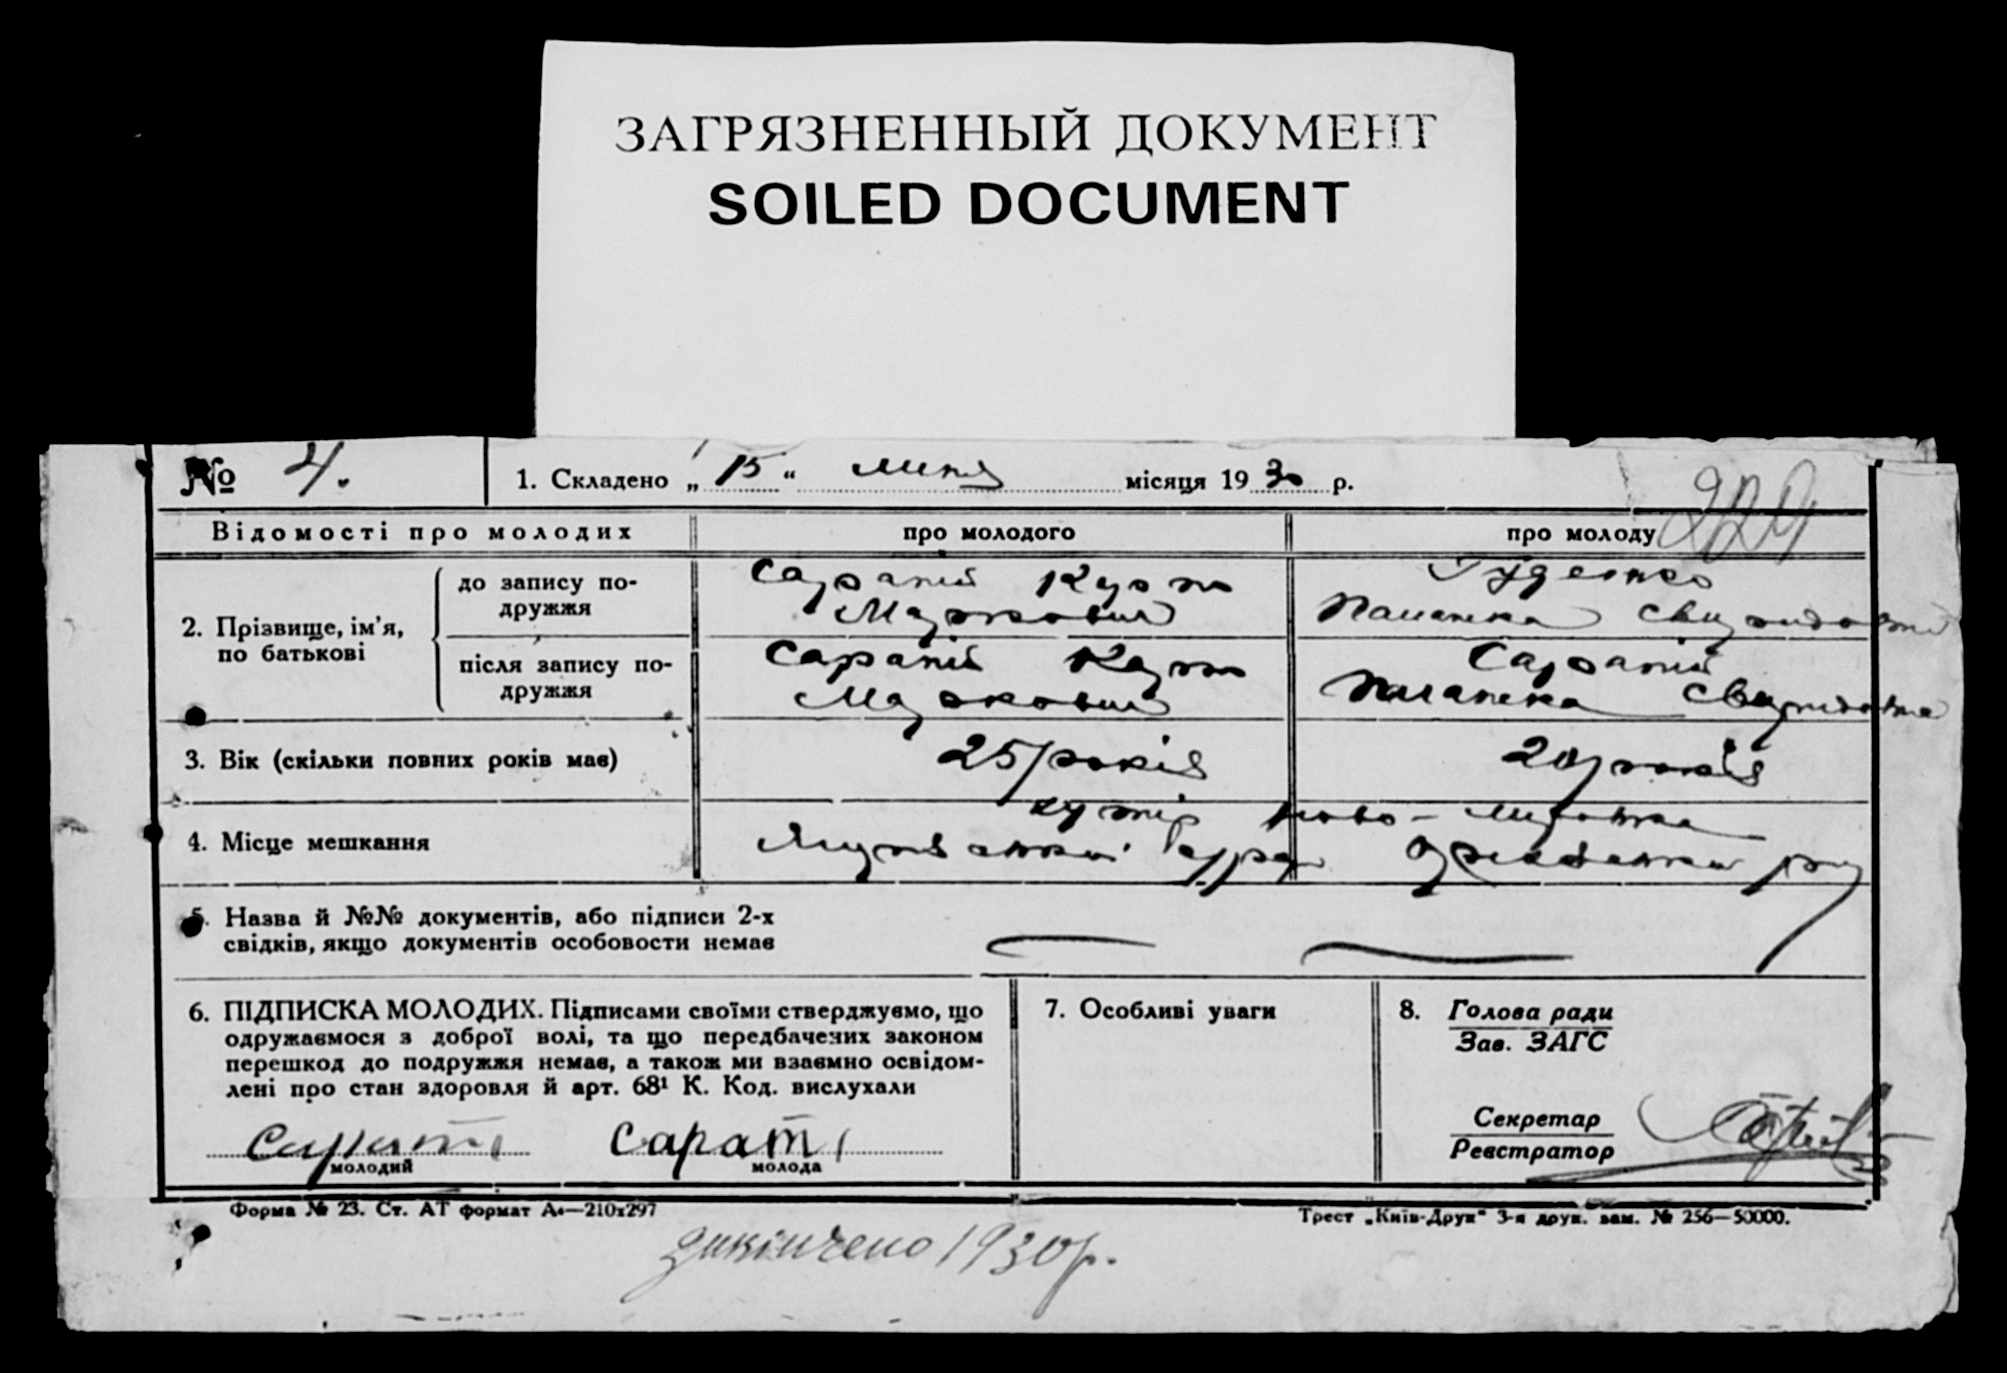 ЗАГРЯЗНЕННЫЙ ДОКУМЕНТ
SOILED DOCUMENT
№ 4. 1. Складено „ 15 “ липня місяця 1930 р.
229
Відомості про молодих про молодого про молоду
2. Прізвище, ім'я, по батькові
до запису подружжя
Сарапій Маркович
Гуденко
після запису подружжя
Сарапій Маркович
Сарапій
3. Вік (скільки повних років має) 25 років 20 років
4. Місце мешкання
хутір Ново-
5. Назва й №№ документів, або підписи 2-х
свідків, якщо документів особовости немає
6. ПІДПИСКА МОЛОДИХ. Підписами своїми стверджуємо, що
одружаємося з доброї волі, та що передбачених законом
перешкод до подружжя немає, а також ми взаємно освідом-
лені про стан здоровля й арт. 68¹ К. Код. вислухали
молодий
молода
7. Особливі уваги
8. Голова ради
Зав. ЗАГС
Секретар
Реєстратор
Форма № 23. Ст. АТ формат А₄—210х297
Трест „Київ-Друк“ 3-я друк. зам. № 256—50000.
закінчено 1930р.